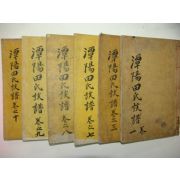 潭陽田氏族譜 卷一
潭陽田氏族譜 卷之三
潭陽田氏族譜 卷之七
潭陽田氏族譜 卷之八
潭陽田氏族譜 卷之九
潭陽田氏族譜 卷之十